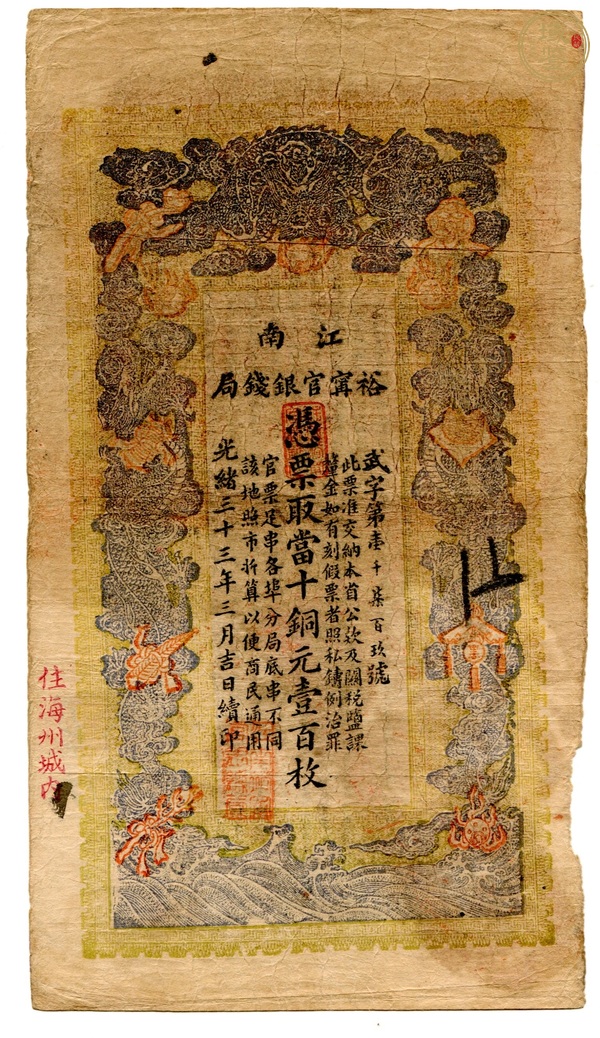 江南
裕甯官銀錢局
武字第壹千柒百玖號
此票准交納本首公欵及關稅鹽課
釐金如有刻假票者照私鑄例治罪
憑票取當十銅元壹百枚
官票足串各埠分局底串不同
該地照市折算以便商民通用
光緒三十三年三月吉日續印
住海州城内